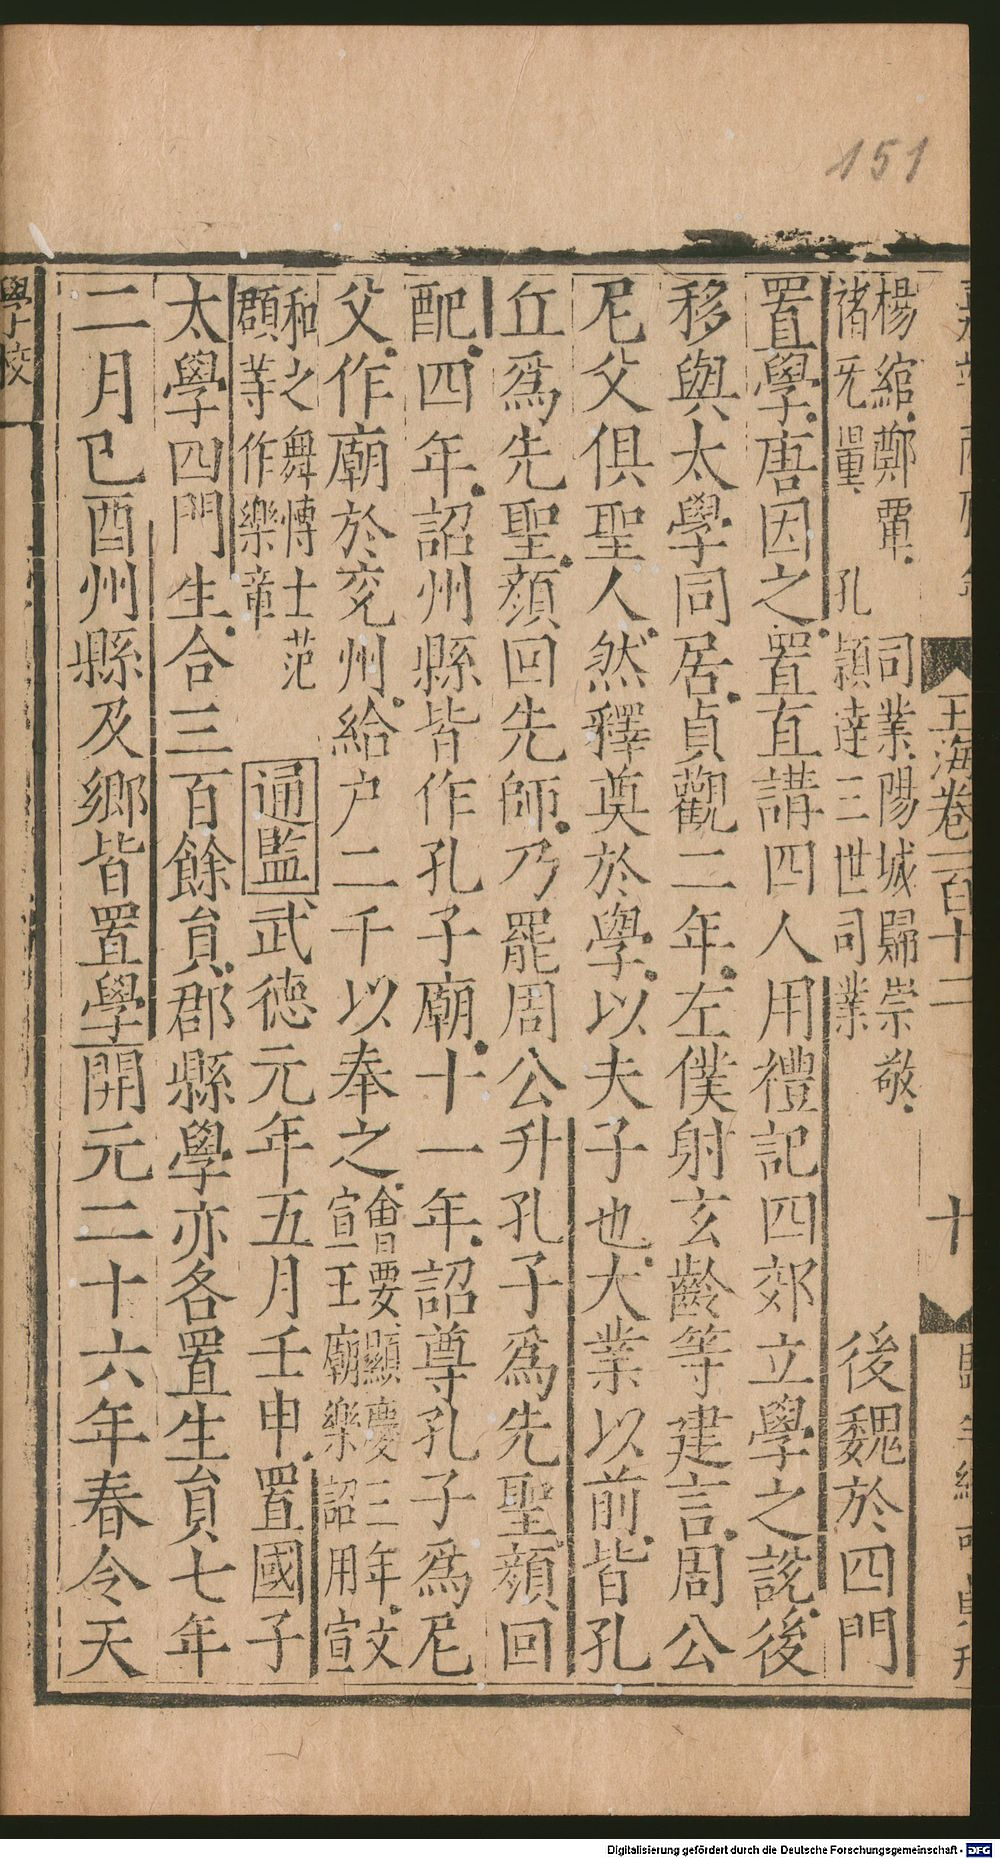 151
玉海卷一百十二
十
楊綰鄭覃司業陽城歸崇敬
褚无量孔穎達三世司業
後魏於四門
置學唐因之置直講四人用禮記四郊立學之說後
移與太學同居貞觀二年左僕射玄齡等建言周公
尼父俱聖人然釋奠於學以夫子也大業以前皆孔
丘爲先聖顏回先師乃罷周公升孔子爲先聖顏回
配四年詔州縣皆作孔子廟十一年詔尊孔子爲尼
父作廟於兗州給户二千以奉之
會要顯慶三年文
宣王廟樂詔用宣
和之舞愽士范
頵等作樂章
通監武德元年五月壬申置國子
太學四門生合三百餘員郡縣學亦各置生員七年
二月己酉州縣及鄉皆置學開元二十六年春令天
學校
Digitalisierung gefördert durch die Deutsche Forschungsgemeinschaft - DFG